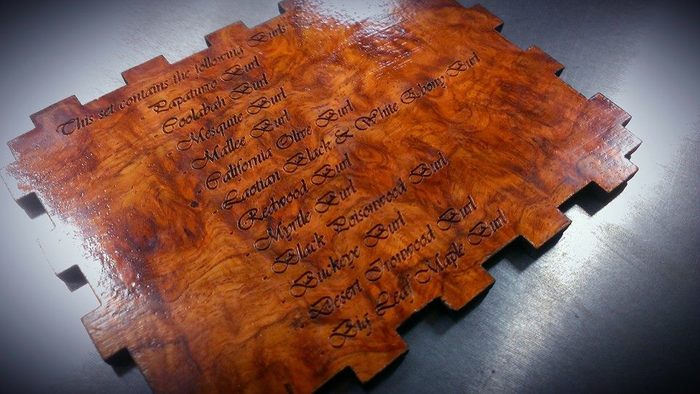 This set contains the following Burls
Papaturro Burl
Coolabah Burl
Mesquite Burl
Mallee Burl
California Olive Burl
Laotian Black & White Ebony Burl
Redwood Burl
Myrtle Burl
Black Poisonwood Burl
Buckeye Burl
Desert Ironwood Burl
Big Leaf Maple Burl